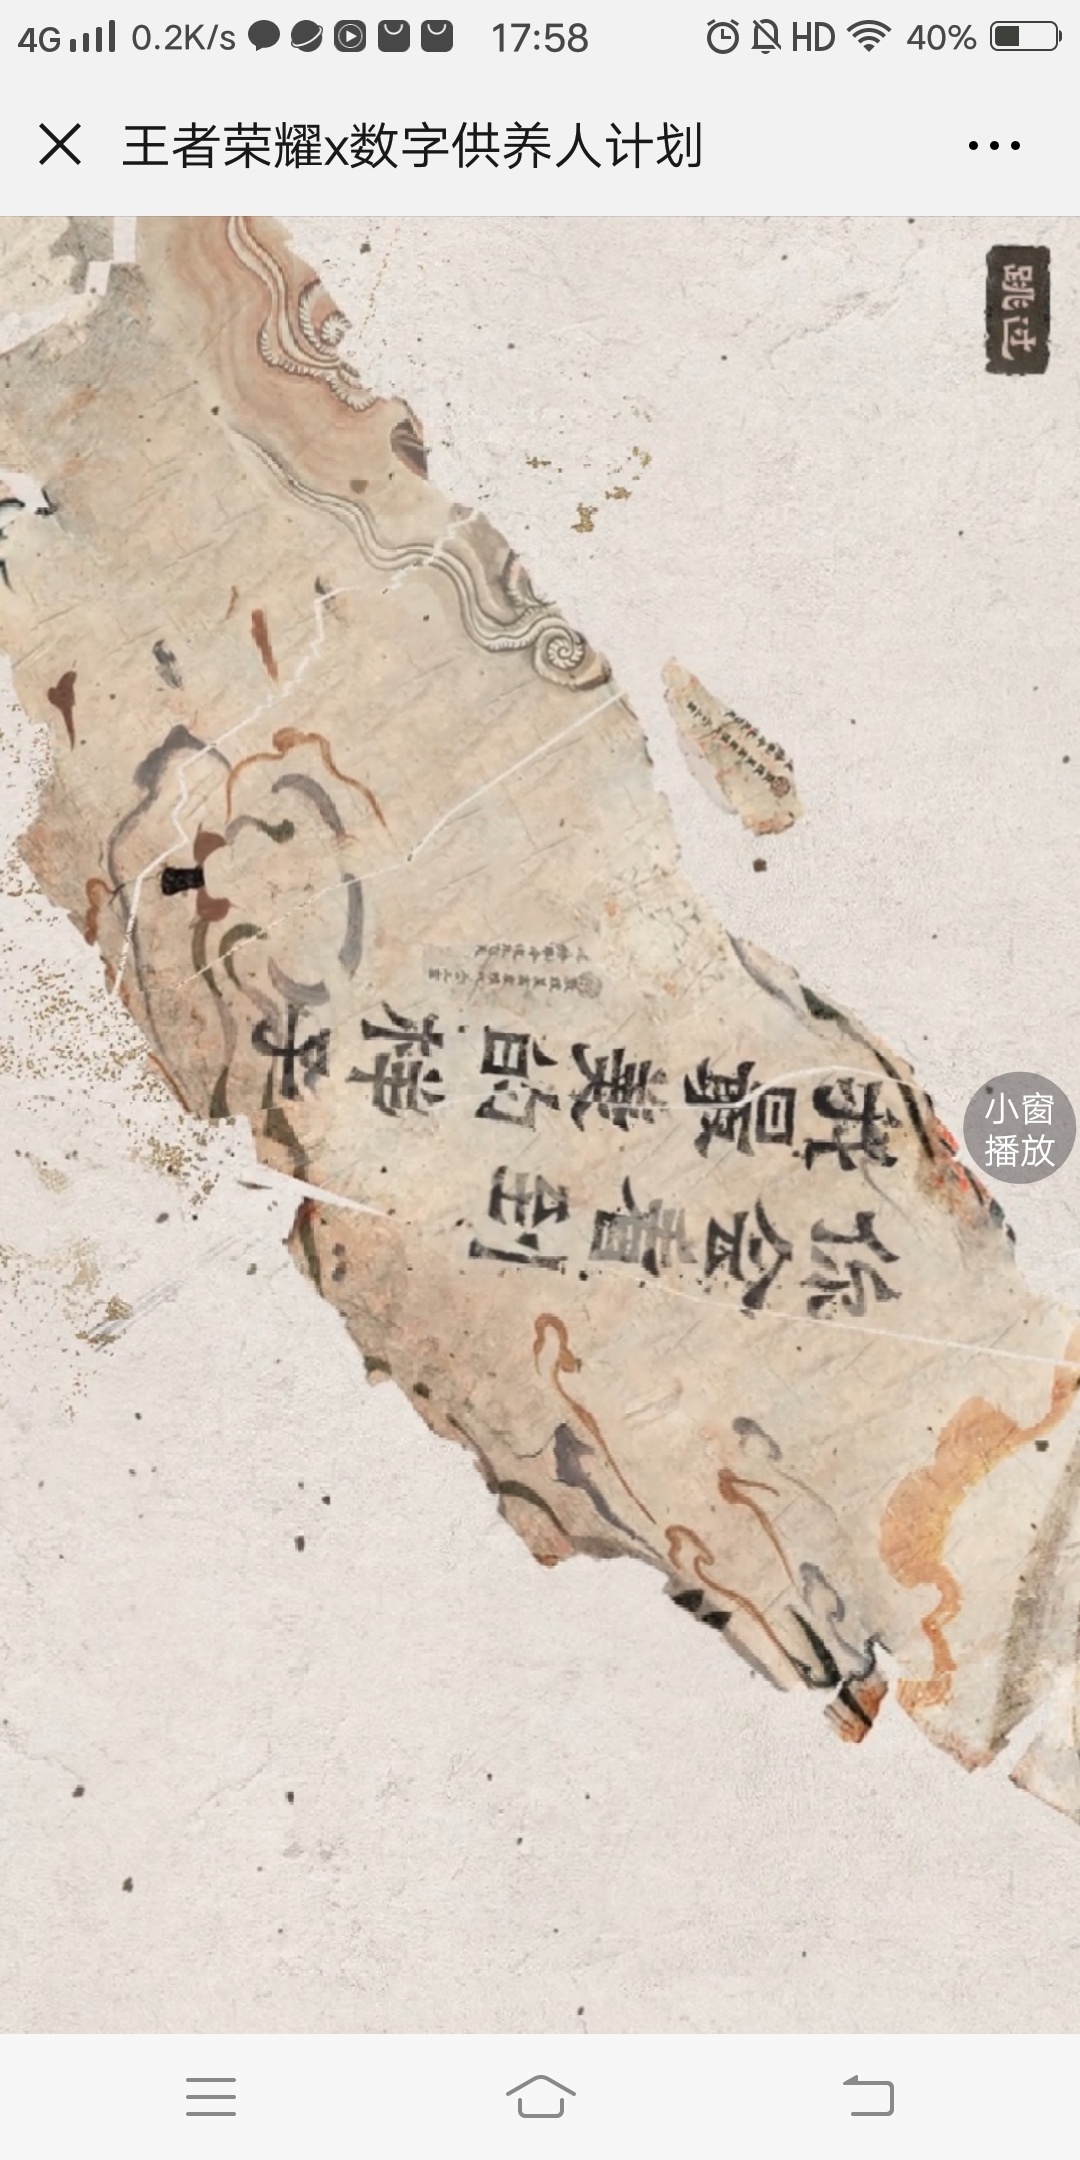 4G 0.2K/s 17:58 HD 40%
王者荣耀x数字供养人计划
跳过
你会看到
我最美的样子
小窗
播放